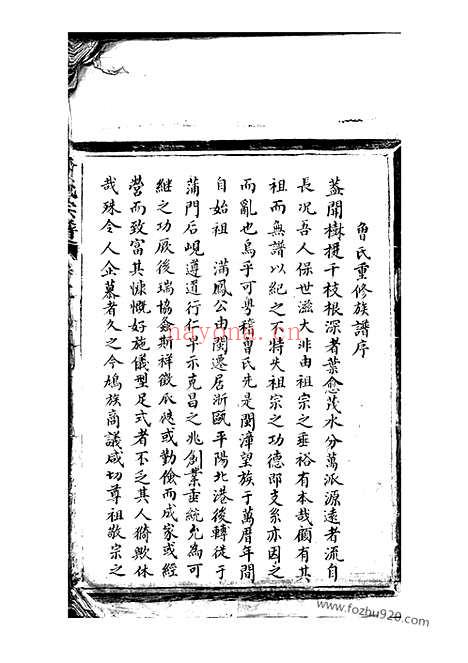 魯氏重修族譜序
蓋聞樹挺千枝根深者葉愈茂水分萬派源遠者流自
長况吾人保世滋大非由祖宗之垂裕有本哉顧有其
祖而無譜以紀之不特失祖宗之功德即支系亦因之
而亂也烏乎可粤稽魯氏先是閩漳望族于萬曆年間
自始祖 滿鳳公由閩遷居浙甌平陽北港後轉徙于
蒲門后峴遵道行仁示克昌之兆創業垂統允為可
継之功厥後瑞協螽斯祥徵瓜瓞或勤儉而成家或經
營而致富其慷慨好施儀型足式者不乏其人猗歟休
哉殊令人企慕者久之今鳩族商議咸切尊祖敬宗之
氏宗譜
nayona.cn
www.fozhu920.com